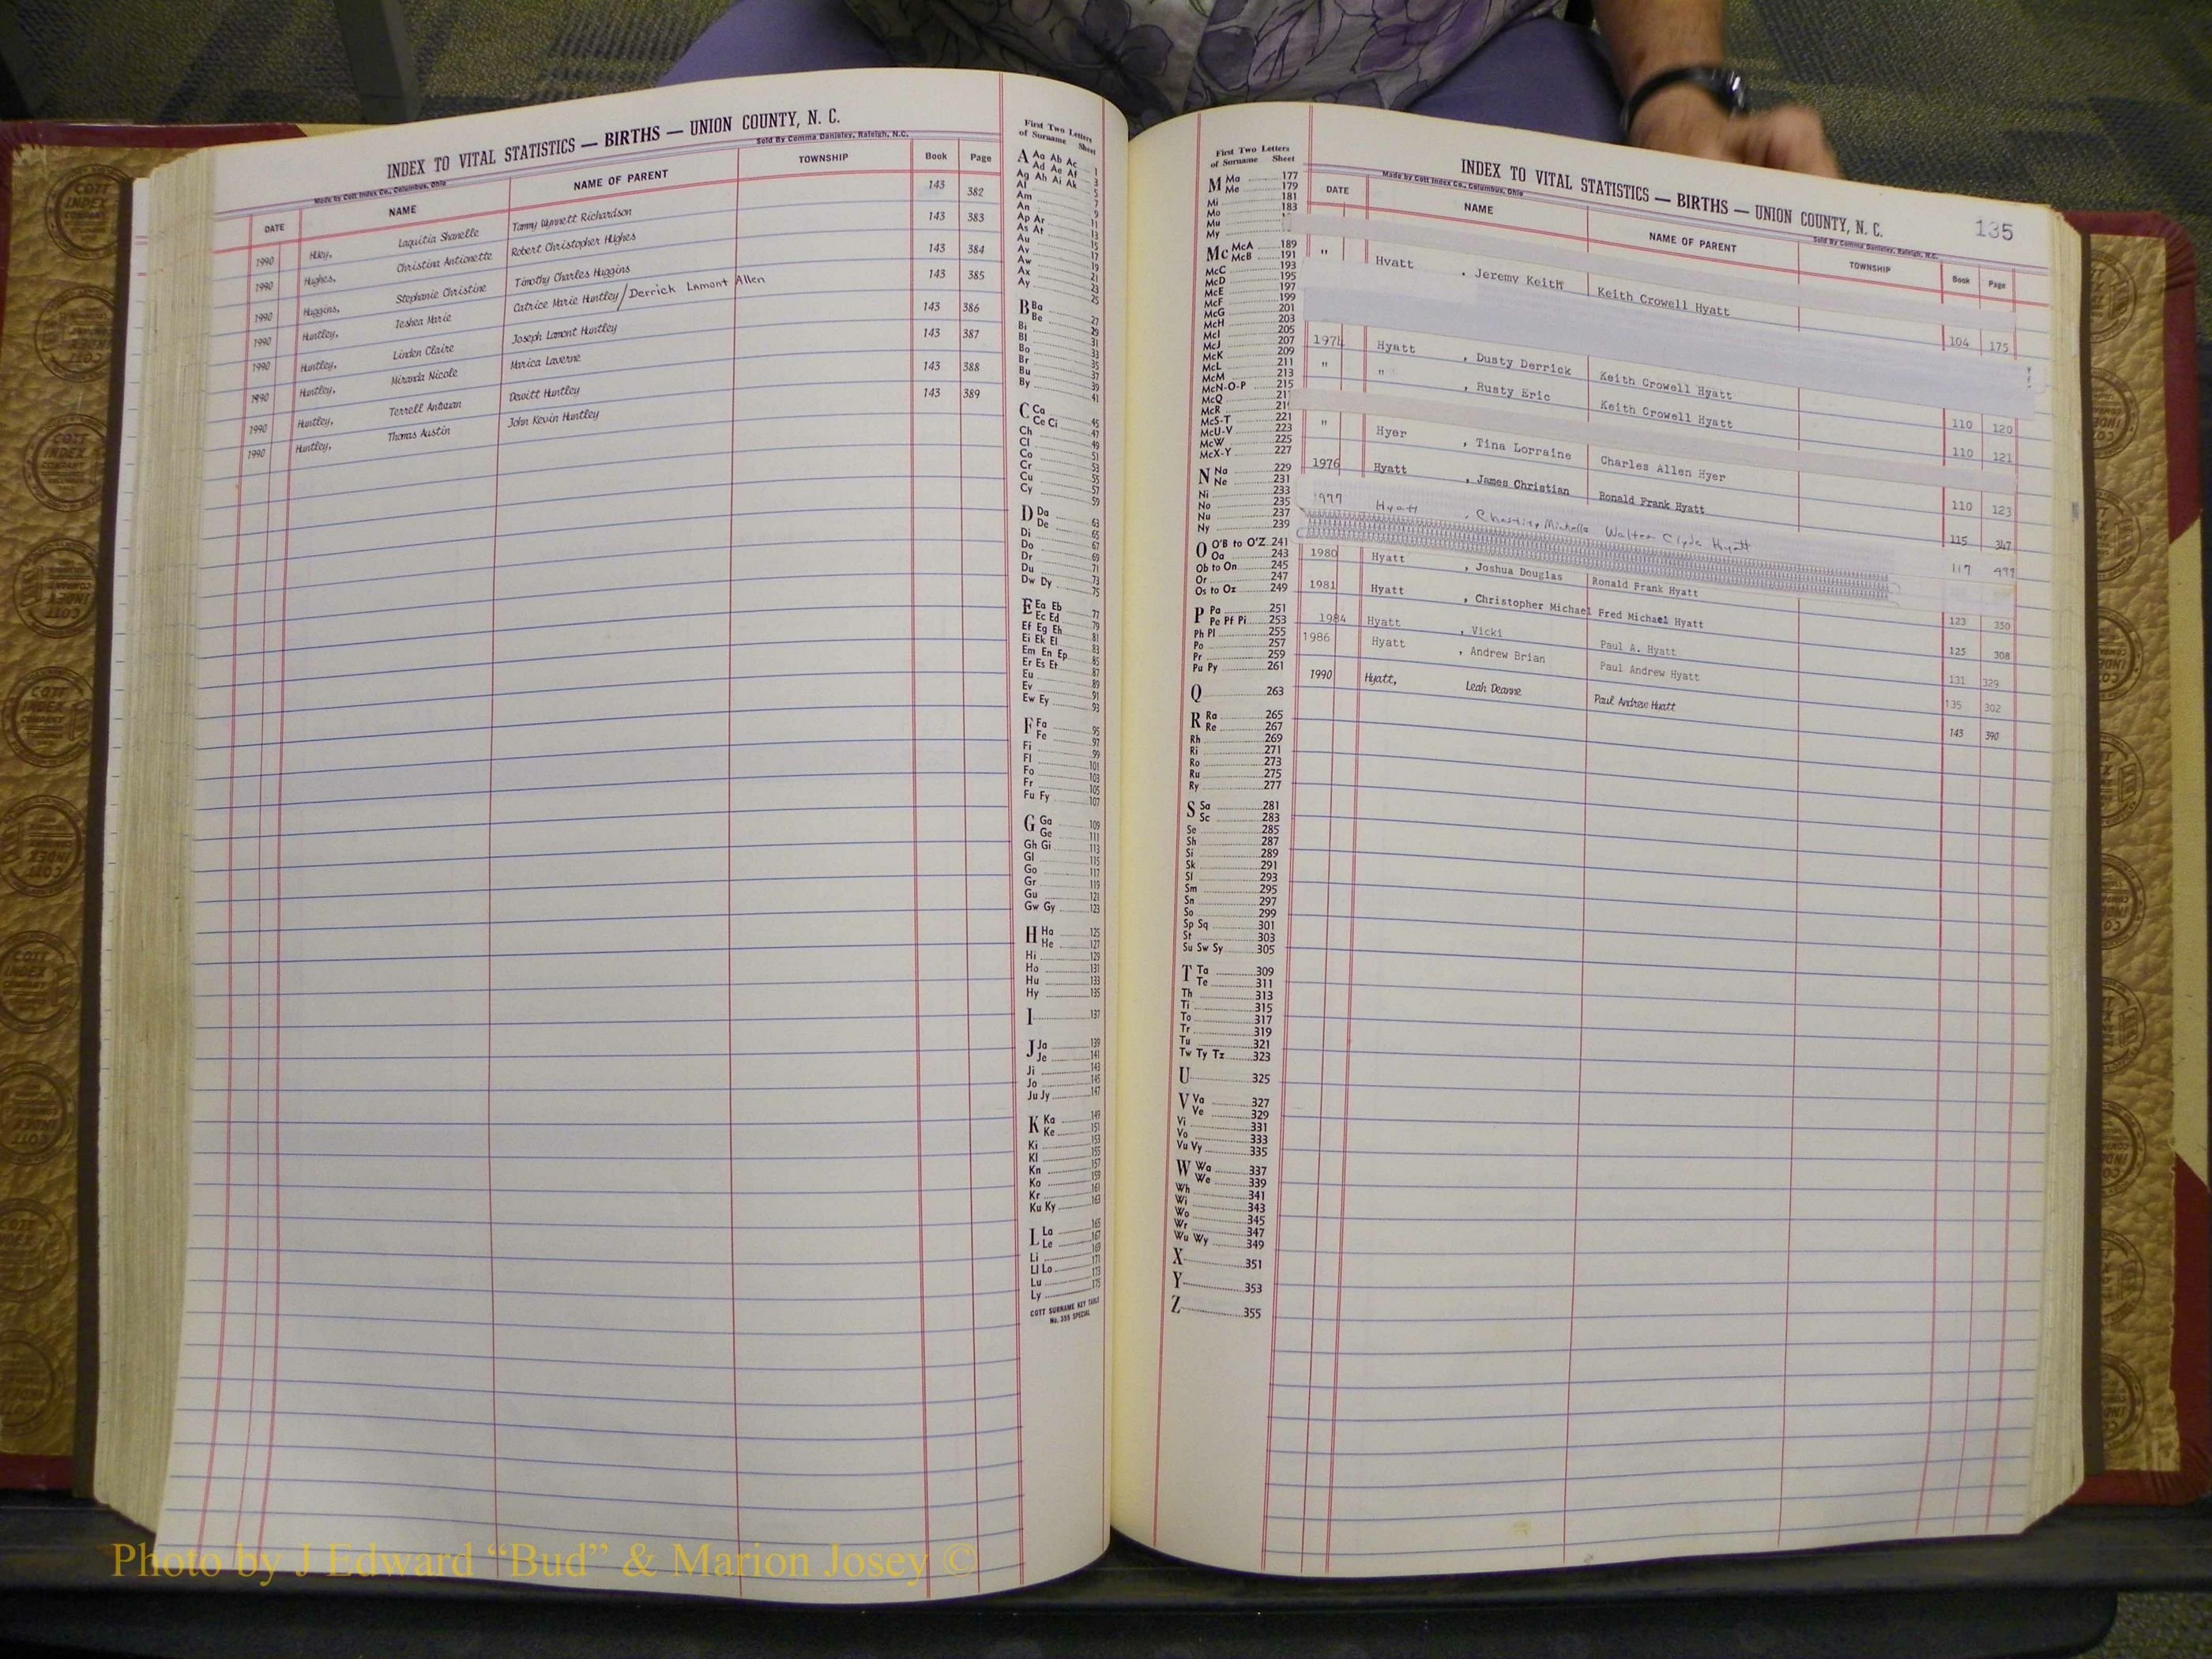 INDEX TO VITAL STATISTICS — BIRTHS — UNION COUNTY, N. C.
Made by Cott Index Co., Columbus, Ohio
Sold By Comma Danieley, Raleigh, N.C.
DATE NAME NAME OF PARENT TOWNSHIP Book Page
1990 Huey, Laquitia Shanelle Tammy Wynnett Richardson 143 382
1990 Hughes, Christina Antionette Robert Christopher Hughes 143 383
1990 Huggins, Stephanie Christine Timothy Charles Huggins 143 384
1990 Huntley, Ieshea Marie Catrice Marie Huntley/Derrick Lamont Allen 143 385
1990 Huntley, Linden Claire Joseph Lamont Huntley 143 386
1990 Huntley, Miranda Nicole Marica Laverne 143 387
1990 Huntley, Terrell Antwan Dewitt Huntley 143 388
1990 Huntley, Thomas Austin John Kevin Huntley 143 389
First Two Letters
of Surname Sheet
A Aa Ab Ac 1
Ad Ae Af 3
Ag Ah Ai Ak 5
Al 7
Am 9
An 11
Ap Ar 13
As At 15
Au 17
Av 19
Aw 21
Ax 23
Ay 25
B Ba 27
Be 29
Bi 31
Bl 33
Bo 35
Br 37
Bu 39
By 41
C Ca 45
Ce Ci 47
Ch 49
Cl 51
Co 53
Cr 55
Cu 57
Cy 59
D Da 63
De 65
Di 67
Do 69
Dr 71
Du 73
Dw Dy 75
E Ea Eb 77
Ec Ed 79
Ef Eg Eh 81
Ei Ek El 83
Em En Ep 85
Er Es Et 87
Eu 89
Ev 91
Ew Ey 93
F Fa 95
Fe 97
Fi 99
Fl 101
Fo 103
Fr 105
Fu Fy 107
G Ga 109
Ge 111
Gh Gi 113
Gl 115
Go 117
Gr 119
Gu 121
Gw Gy 123
H Ha 125
He 127
Hi 129
Ho 131
Hu 133
Hy 135
I 137
J Ja 139
Je 141
Ji 143
Jo 145
Ju Jy 147
K Ka 149
Ke 151
Ki 153
Kl 155
Kn 157
Ko 159
Kr 161
Ku Ky 163
L La 165
Le 167
Li 169
Ll Lo 171
Lu 173
Ly 175
COTT SURNAME KEY TABLE
No. 355 SPECIAL
First Two Letters
of Surname Sheet
M Ma 177
Me 179
Mi 181
Mo 183
Mu
My
Mc McA 189
McB 191
McC 193
McD 195
McE 197
McF 199
McG 201
McH 203
McI 205
McJ 207
McK 209
McL 211
McM 213
McN-O-P 215
McQ
McR
McS-T 221
McU-V 223
McW 225
McX-Y 227
N Na 229
Ne 231
Ni 233
No 235
Nu 237
Ny 239
O O'B to O'Z 241
Oa 243
Ob to On 245
Or 247
Os to Oz 249
P Pa 251
Pe Pf Pi 253
Ph Pl 255
Po 257
Pr 259
Pu Py 261
Q 263
R Ra 265
Re 267
Rh 269
Ri 271
Ro 273
Ru 275
Ry 277
S Sa 281
Sc 283
Se 285
Sh 287
Si 289
Sk 291
Sl 293
Sm 295
Sn 297
So 299
Sp Sq 301
St 303
Su Sw Sy 305
T Ta 309
Te 311
Th 313
Ti 315
To 317
Tr 319
Tu 321
Tw Ty Tz 323
U 325
V Va 327
Ve 329
Vi 331
Vo 333
Vu Vy 335
W Wa 337
We 339
Wh 341
Wi 343
Wo 345
Wr 347
Wu Wy 349
X 351
Y 353
Z 355
INDEX TO VITAL STATISTICS — BIRTHS — UNION COUNTY, N. C. 135
Made by Cott Index Co., Columbus, Ohio
Sold By Comma Danieley, Raleigh, N.C.
DATE NAME NAME OF PARENT TOWNSHIP Book Page
" Hyatt , Jeremy Keith Keith Crowell Hyatt 104 175
1974 Hyatt , Dusty Derrick Keith Crowell Hyatt 110 120
" " , Rusty Eric Keith Crowell Hyatt 110 121
" Hyer , Tina Lorraine Charles Allen Hyer 110 123
1976 Hyatt , James Christian Ronald Frank Hyatt 115 347
1977 Hyatt , Chastity Michelle Walter Clyde Hyatt 117 499
1980 Hyatt , Joshua Douglas Ronald Frank Hyatt 123 350
1981 Hyatt , Christopher Michael Fred Michael Hyatt 125 308
1984 Hyatt , Vicki Paul A. Hyatt 131 329
1986 Hyatt , Andrew Brian Paul Andrew Hyatt 135 302
1990 Hyatt, Leah Deanne Paul Andrew Hyatt 143 390
Photo by J Edward “Bud” & Marion Josey ©